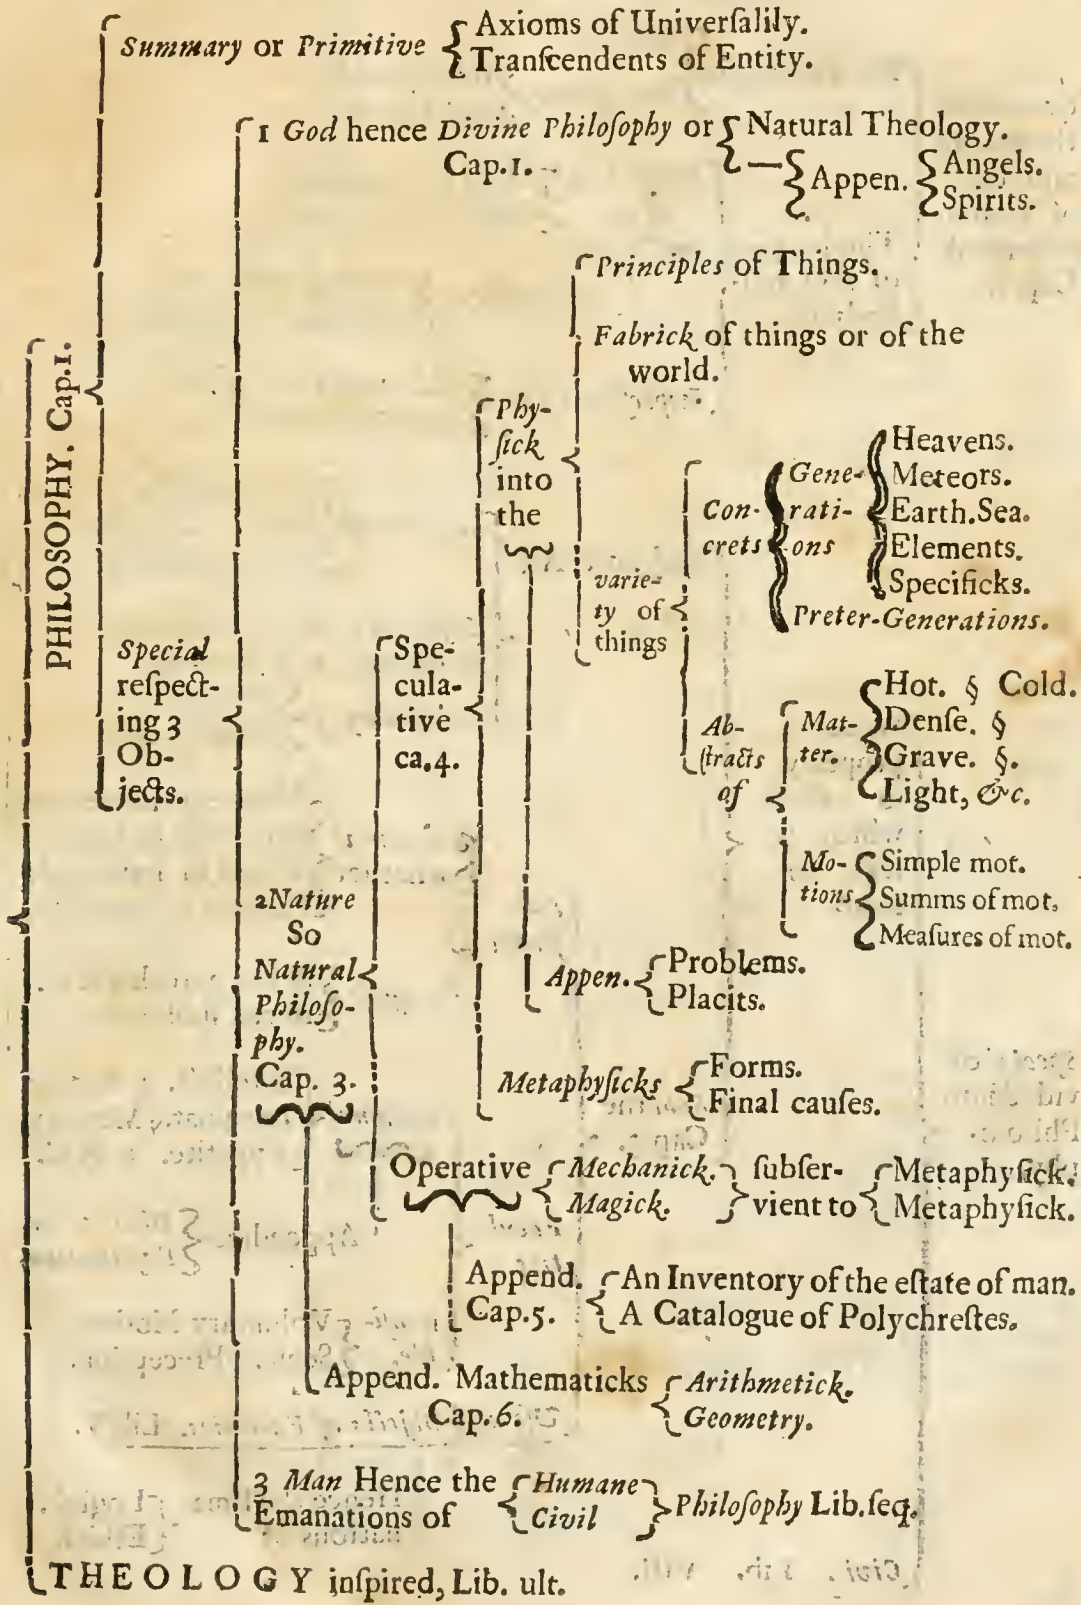 Summary or Primitive
Axioms of Univerſalily.
Tranſcendents of Entity.
1 God hence Divine Philoſophy or
Cap.1.
Natural Theology.
Appen.
Angels.
Spirits.
PHILOSOPHY. Cap.1.
Special
reſpect-
ing 3
Ob-
jects.
2Nature
So
Natural
Philoſo-
phy.
Cap. 3.
Spe-
cula-
tive
ca.4.
Phy-
ſick
into
the
Principles of Things.
Fabrick of things or of the
world.
varie-
ty of
things
Con-
crets
Gene-
rati-
ons
Heavens.
Meteors.
Earth.Sea.
Elements.
Specificks.
Preter-Generations.
Ab-
ſtracts
of
Mat-
ter.
Hot. § Cold.
Denſe. §
Grave. §.
Light, &c.
Mo-
tions
Simple mot.
Summs of mot,
Meaſures of mot.
Appen.
Problems.
Placits.
Metaphyſicks
Forms.
Final cauſes.
Operative
Mechanick.
Magick.
ſubſer-
vient to
Metaphyſick.
Metaphyſick.
Append.
Cap.5.
An Inventory of the eſtate of man.
A Catalogue of Polychreſtes.
Append. Mathematicks
Cap.6.
Arithmetick.
Geometry.
3 Man Hence the
Emanations of
Humane
Civil
Philoſophy Lib.ſeq.
THEOLOGY inſpired, Lib. ult.